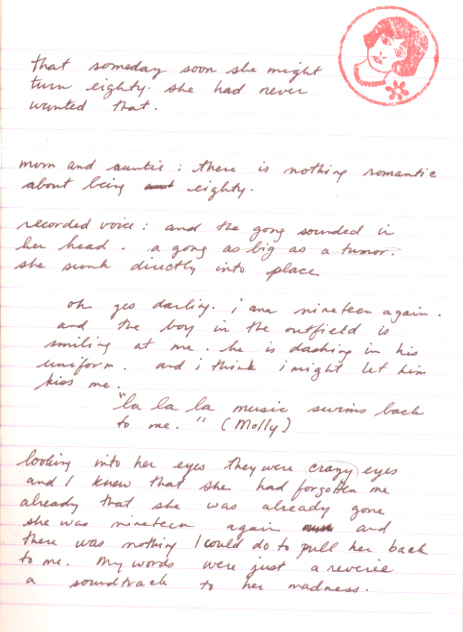 that someday soon she might
turn eighty. she had never
wanted that.
mom and auntie : there is nothing romantic
about being eighty.
recorded voice : and the gong sounded in
her head. a gong as big as a tumor.
she sunk directly into place
oh yes darling. i am nineteen again.
and the boy in the outfield is
smiling at me. he is dashing in his
uniform. and i think i might let him
kiss me.
"la la la music swims back
to me." (Molly)
looking into her eyes they were crazy eyes
and I knew that she had forgotten me
already that she was already gone
she was nineteen again and
there was nothing I could do to pull her back
to me. My words were just a reverie
a soundtrack to her madness.